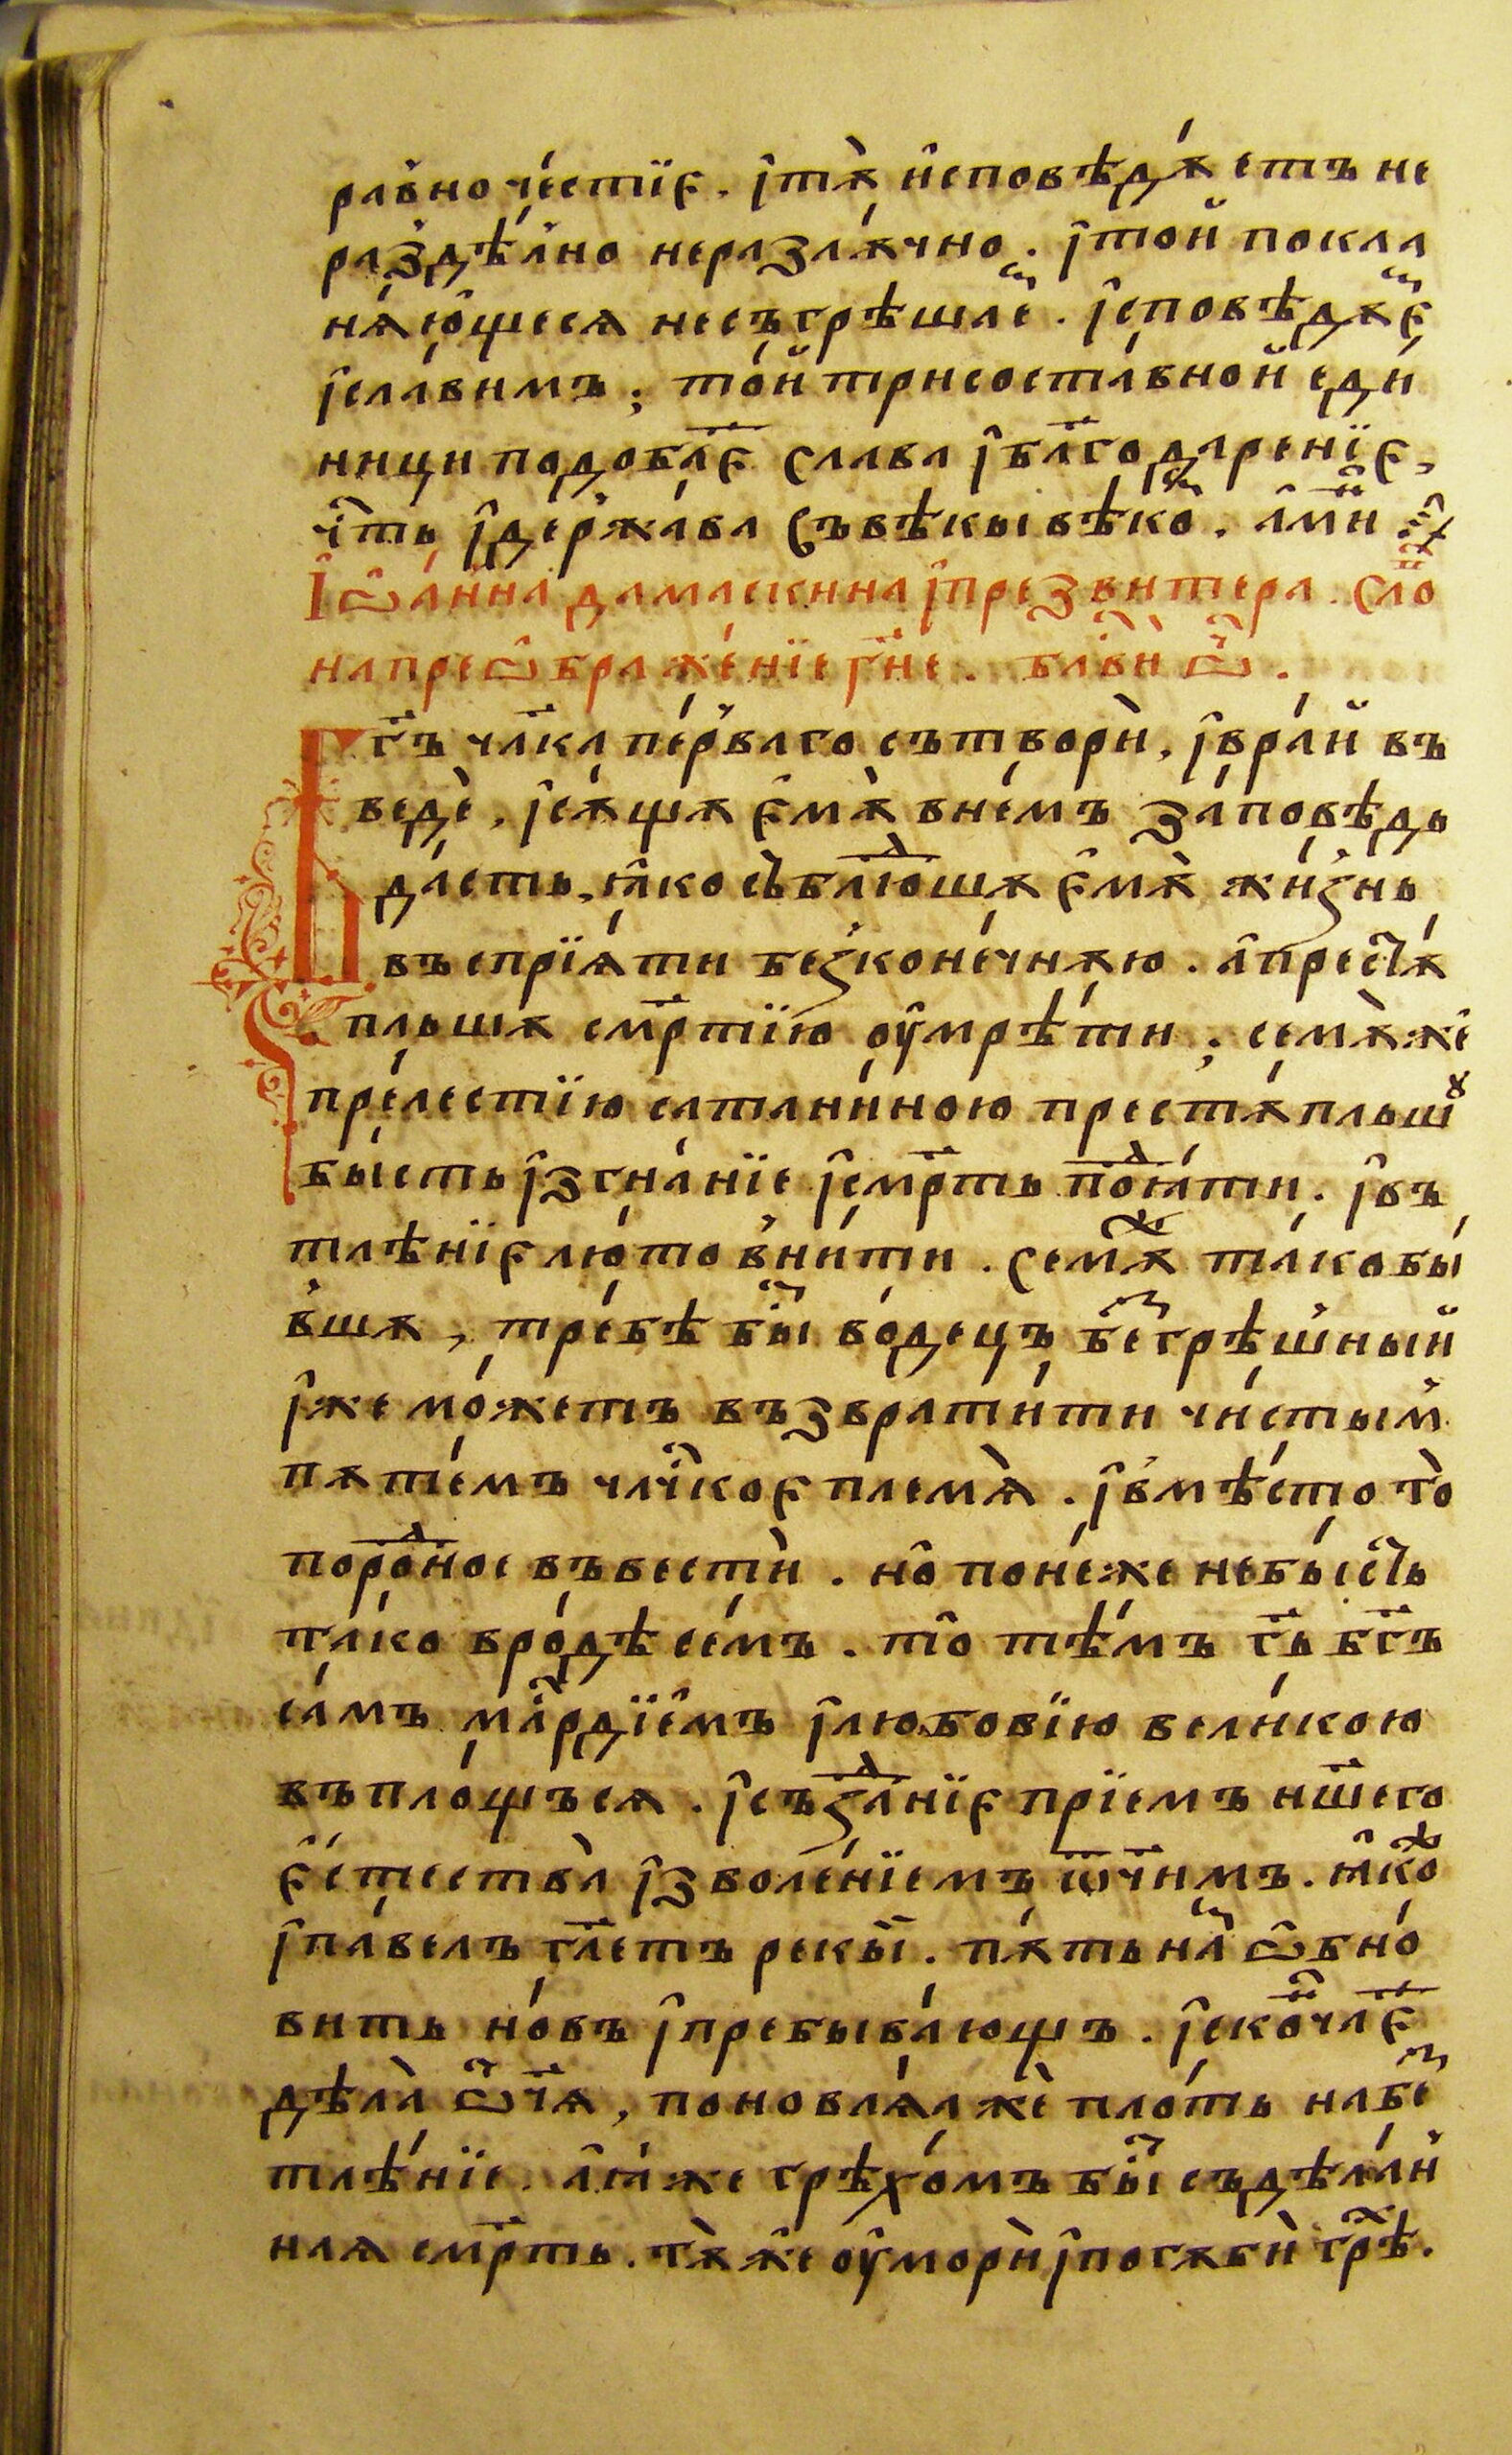 равночестїе. і тѫ исповѣдѫетъ не
раздѣлно неразлѫчно. і той покла
няющеся несъгрѣшаеⷨ. ісповѣдѫеⷨ
іславимъ; той трисоставной еди
ници подобае҃ слава і бл҃годаренїе,
ч҃ть і держава съвѣкы вѣкоⷨ. ами҃н
Іѡанна дамаскина і презвитера. сло҃
на преѡбраженїе гн҃е. бл҃ви ѡ҃ч.
Гь҃ чл҃ка перваго сътвори, і в рай въ
веде, і сѫщѫ емѫ в немъ заповѣдь
дасть, ꙗко съблюⷣшѫ емѫ жизнь
въспрїяти безконечнѫю. а престѫ
пльшѫ см҃ртїю оумрѣти; семѫ же
прелестїю сатаниною престѫпльшꙋ
бысть ізгнанїе і см҃рть поⷣꙗти. і въ
тлѣнїе люто внити. семѫⷤ тако бы
вшѫ, требѣ быⷭ водецъ беⷥгрѣшный
іже можетъ възвратити чистым
пѫтемъ чл҃чкое племя. і вмѣсто то
пороⷣное въвести. но понеже небысть
тако вродѣ семъ. то тѣмъ гь҃ бг҃ъ
самъ мл҃рдїемъ і любовїю великою
въплощъся. і съзⷣанїе прїемъ нш҃его
естества ізволенїемъ ѿч҃имъ. ꙗкоⷤ
і павелъ гл҃етъ рекый. пѫть наⷨ ѡбно
вить новъ і пребывающъ. і скоⷩчае҃
дѣла ѡ҃чя, поновляя же плоть на беⷥ
тлѣнїе. аꙗже грѣхомъ быⷭ съдѣлан
ная см҃рть. тѫже оумори і погѫби грѣⷯ.